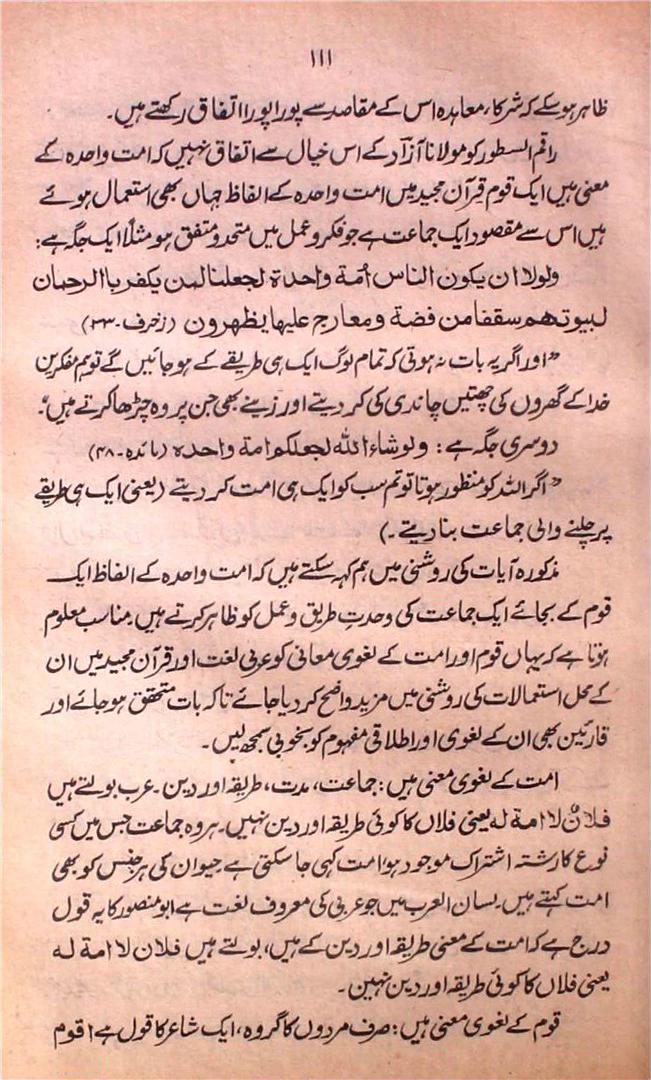 ۱۱۱
ظاہر ہو سکے کہ شرکاء معاہدہ اس کے مقاصد سے پورا پورا اتفاق رکھتے ہیں۔
راقم السطور کو مولانا آزاد کے اس خیال سے اتفاق نہیں کہ امت واحدہ کے
معنی ہیں ایک قوم قرآن مجید میں امت واحدہ کے الفاظ جہاں بھی استعمال ہوئے
ہیں اس سے مقصود ایک جماعت ہے جو فکر و عمل میں متحد و متفق ہو مثلاً ایک جگہ ہے:
ولولا ان یکون الناس اُمة واحدة لجعلنا لمن یکفر باالرحمان
لبیوتھم سقفا من فضة ومعارج علیھا یظھرون (زخرف۔۳۳)
"اور اگر یہ بات نہ ہوتی کہ تمام لوگ ایک ہی طریقے کے ہو جائیں گے تو ہم منکرین
خدا کے گھروں کی چھتیں چاندی کی کر دیتے اور زینے بھی جن پر وہ چڑھا کرتے ہیں"۔
دوسری جگہ ہے: ولو شاء اللہ لجعلکم امة واحدة (مائدہ۔۴۸)
"اگر اللہ کو منظور ہوتا تو تم سب کو ایک ہی امت کر دیتے (یعنی ایک ہی طریقے
پر چلنے والی جماعت بنا دیتے۔)
مذکورہ آیات کی روشنی میں ہم کہہ سکتے ہیں کہ امت واحدہ کے الفاظ ایک
قوم کے بجائے ایک جماعت کی وحدتِ طریق و عمل کو ظاہر کرتے ہیں۔ مناسب معلوم
ہوتا ہے کہ یہاں قوم اور امت کے لغوی معانی کو عربی لغت اور قرآن مجید میں ان
کے محل استعمالات کی روشنی میں مزید واضح کر دیا جائے تاکہ بات متحقق ہو جائے اور
قارئین بھی ان کے لغوی اور اطلاقی مفہوم کو بخوبی سمجھ لیں۔
امت کے لغوی معنی ہیں: جماعت، مدت، طریقہ اور دین۔ عرب بولتے ہیں
فلانٌ لا امة له یعنی فلاں کا کوئی طریقہ اور دین نہیں۔ ہر وہ جماعت جس میں کسی
نوع کا رشتہ اشتراک موجود ہو امت کہی جا سکتی ہے حیوان کی ہر جنس کو بھی
امت کہتے ہیں۔ لسان العرب میں جو عربی کی معروف لغت ہے ابو منصور کا یہ قول
درج ہے کہ امت کے معنی طریقہ اور دین کے ہیں، بولتے ہیں فلان لا امة له
یعنی فلاں کا کوئی طریقہ اور دین نہیں۔
قوم کے لغوی معنی ہیں: صرف مردوں کا گروہ، ایک شاعر کا قول ہے اقوم